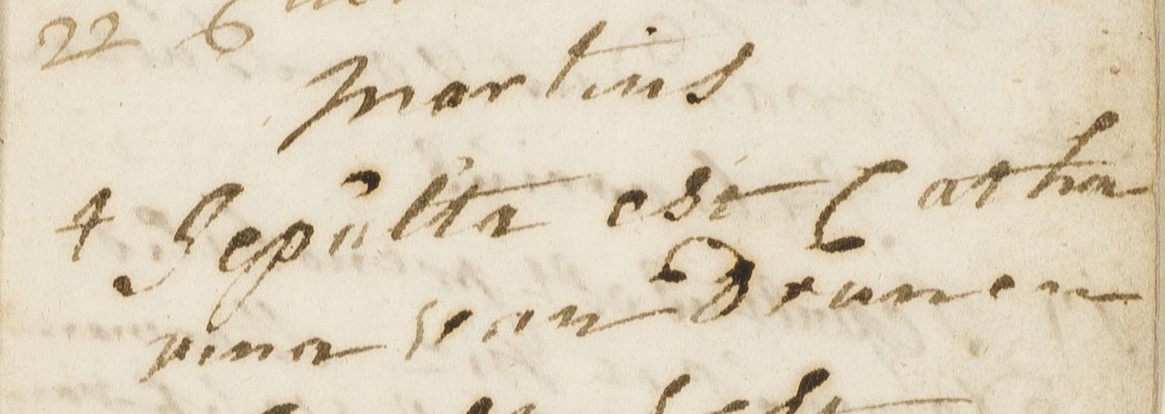 22
martius
4 Sepulta est Catha
rina van Drunen